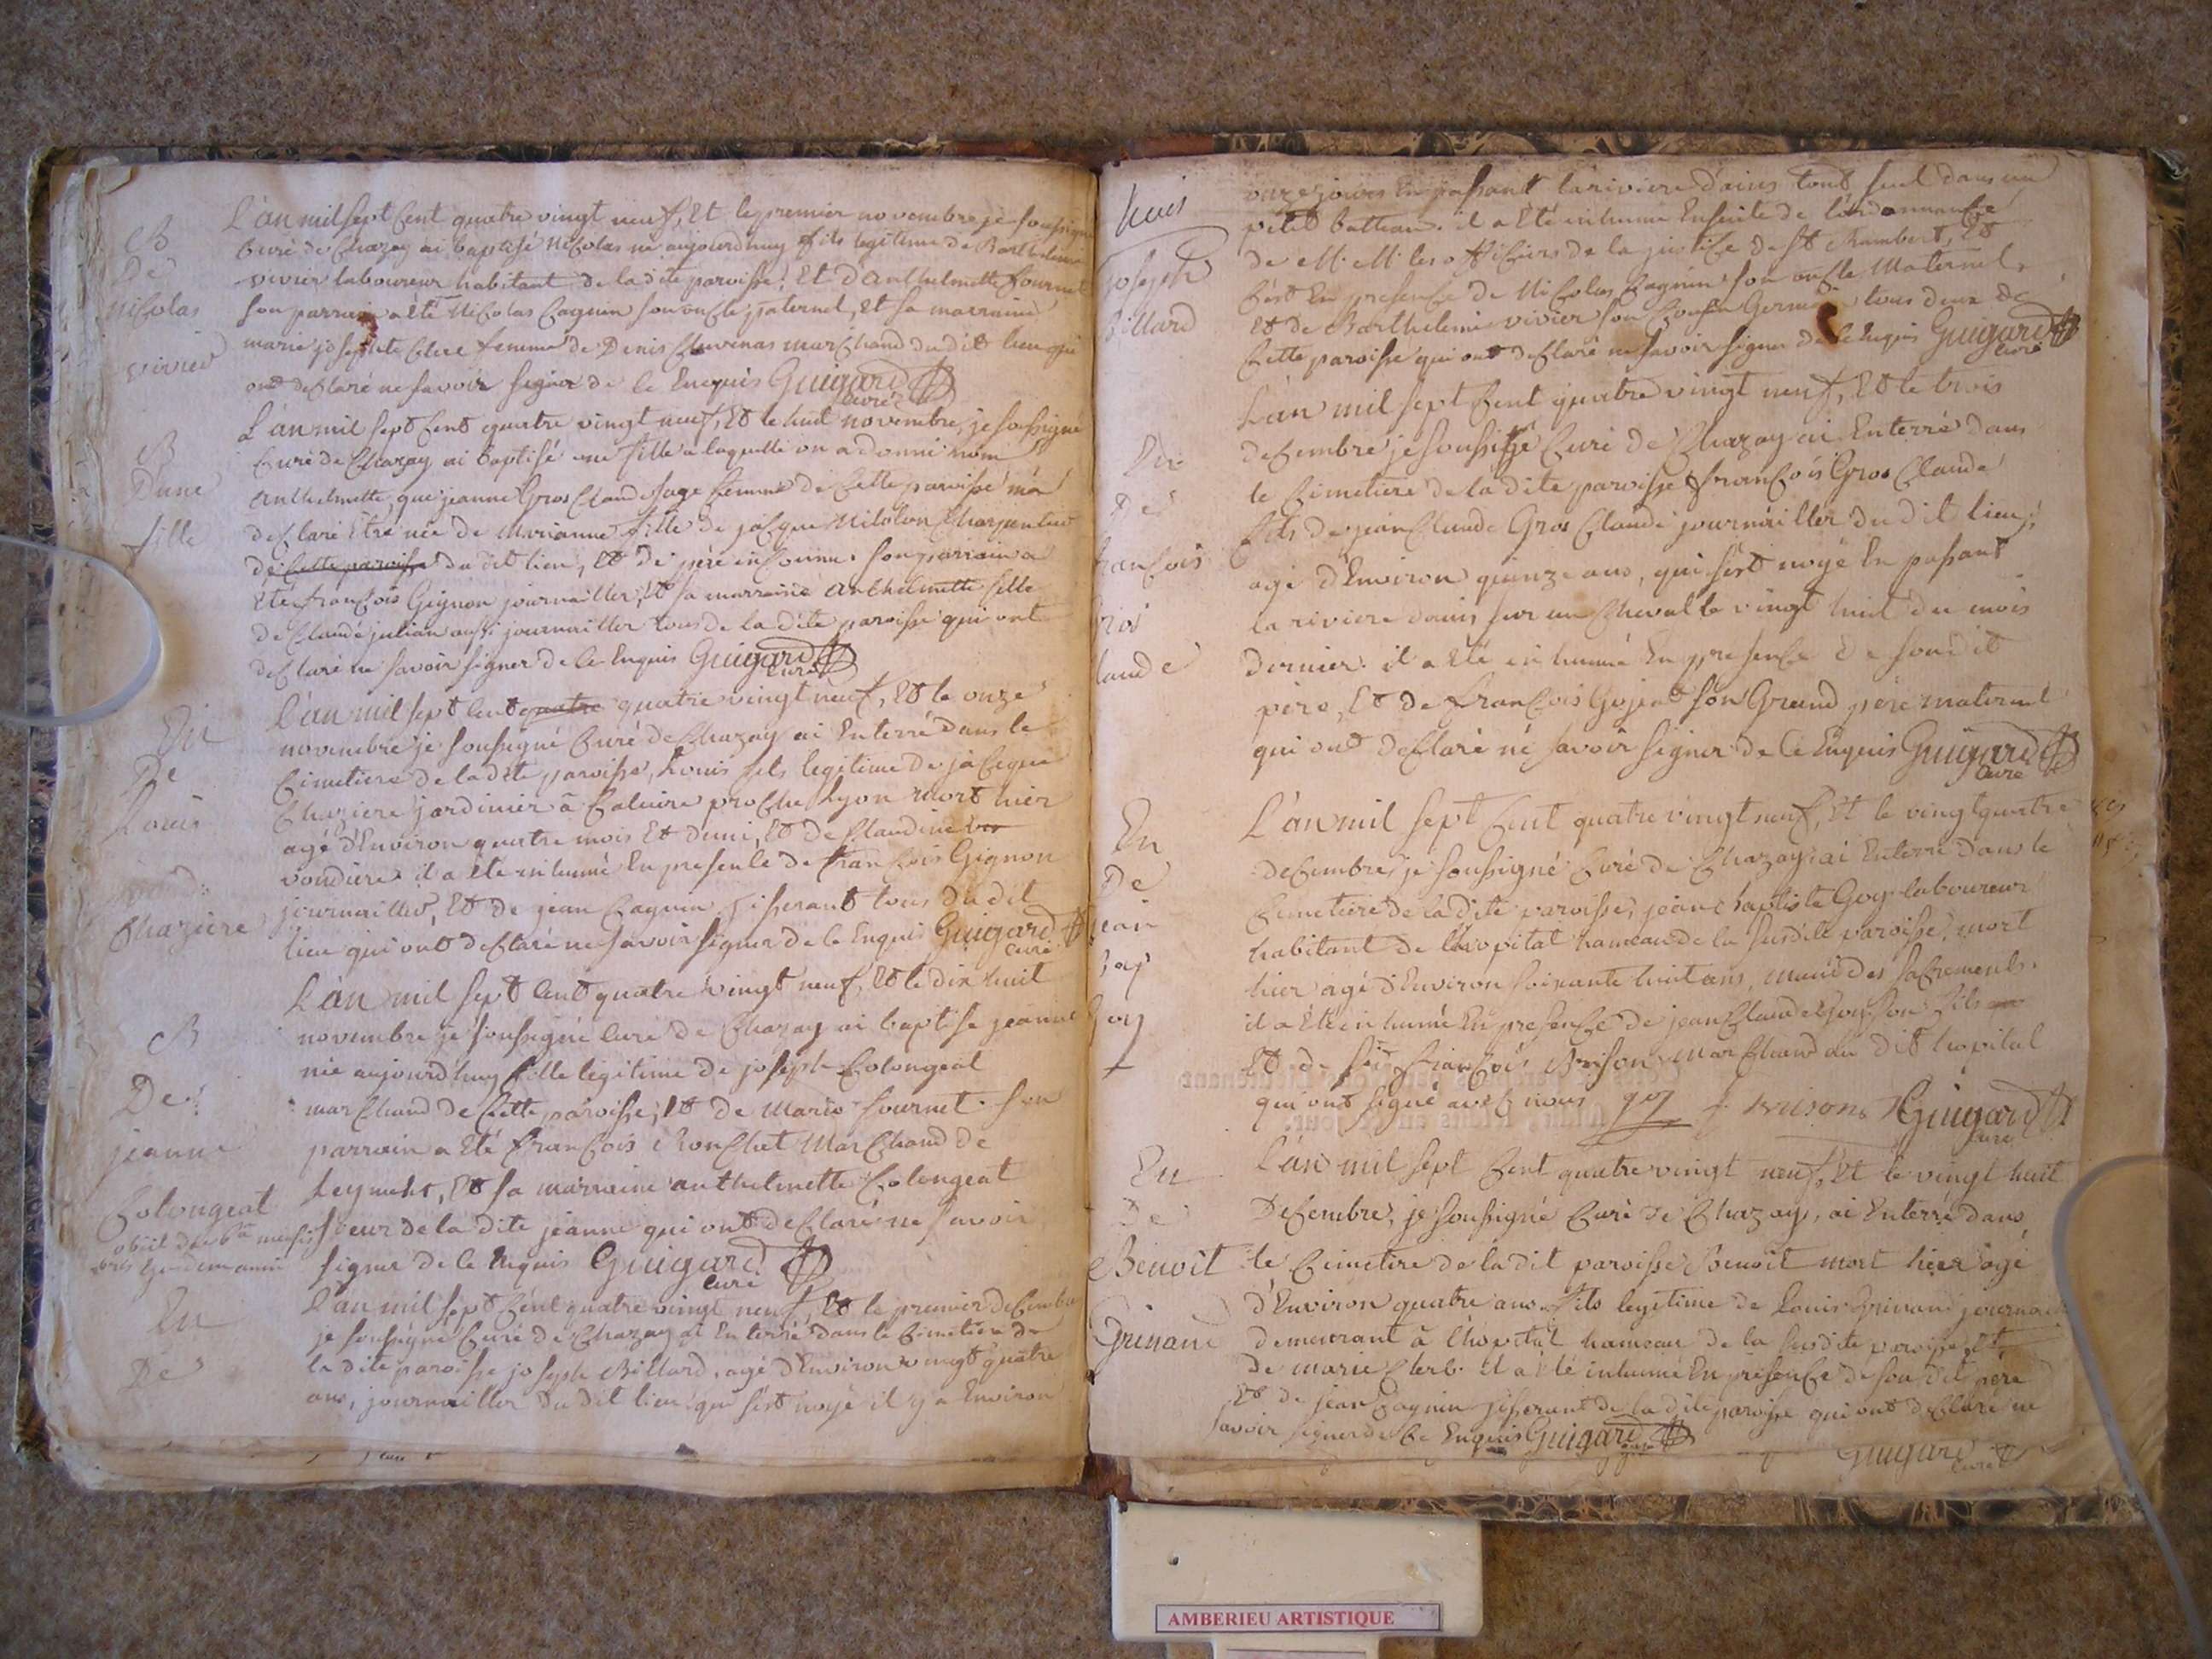 B
De
Nicolas
vivier
L'an mil sept Cent quatre vingt neuf, Et le premier novembre je soussigné
Curé de Chazay ai baptisé Nicolas né aujourdhuy fils legitime de Barthelemi
vivier laboureur habitant de la dite paroisse, Et d'anthelmette fournet
son parrain a été Nicolas Cagnin son oncle paternel, Et sa marraine
marie josephte Clerc femme de Denis Chuvinas marchand du dit lieu qui
ont declaré ne savoir signer de Ce Enquis Guigard
Curé
B
D'une
fille
L'an mil sept Cent quatre vingt neuf, Et le huit novembre, je soussigné
Curé de Chazay ai baptisé une fille a laquelle on a donné nom
anthelmette, que jeanne Gros Claude sage femme de Cette paroisse m'a
declaré Etre née de Marianne fille de jacque Nitolon Charpentier
de Cette paroisse du dit lieu, Et de père inConnu. son parrain a
Eté françois Gignon journailler, Et sa marraine anthelmette fille
de Claude julian aussi journailler tous de la dite paroisse qui ont
declaré ne savoir signer de Ce Enquis Guigard
Curé
En
De
Louis
Chaziere
L'an mil sept Cent quatre quatre vingt neuf, Et le onze
novembre je soussigné Curé de Chazay ai Enterré dans le
Cimetiere de la dite paroisse, Louis fils legitime de jacque
Chaziere jardinier à Caluire proche Lyon mort hier
agé d'Environ quatre mois Et demi, Et de Claudine
vondiere il a Eté inhumé En presence de françois Gignon
journailler, Et de jean Cagnin tisserant tous du dit
lieu qui ont declaré ne savoir signer de Ce Enquis Guigard
Curé
B
De
jeanne
Colongeat
L'an mil sept Cent quatre vingt neuf, Et le dix huit
novembre je soussigné Curé de Chazay ai baptisé jeanne
née aujourdhuy fille legitime de joseph Colongeat
marchand de Cette paroisse, Et de Marie fournet. son
parrain a Eté françois Ronchet Marchand de
Leyment, Et sa marraine anthelmette Colongeat
soeur de la dite jeanne qui ont declaré ne savoir
signer de Ce Enquis Guigard
Curé
En
De
L'an mil sept Cent quatre vingt neuf, Et le premier decembre
je soussigné Curé de Chazay ai Enterré dans le Cimetiere de
la dite paroisse joseph Billard, agé d'Environ vingt quatre
ans, journailler du dit lieu qui s'est noyé il y a Environ
joseph
Billard
onze jours En passant la riviere d'ains tout seul dans un
petit batteau. il a Eté inhumé Ensuite de l'ordonnance
de M. M. les officiers de la justice de St Rambert, Et
C'est En presence de Nicolas Cagnin son oncle Maternel,
Et de Barthelemi vivier son Cousin Germain tous deux de
Cette paroisse qui ont declaré ne savoir signer de Ce Enquis Guigard
Curé
En
De
francois
Gros
Claude
L'an mil sept Cent quatre vingt neuf, Et le trois
decembre je soussigné Curé de Chazay ai Enterré dans
le Cimetiere de la dite paroisse françois Gros Claude
fils de jean Claude Gros Claude journailler du dit lieu,
agé d'Environ quinze ans, qui s'est noyé En passant
la riviere dains sur un Cheval le vingt huit du mois
dernier. il a Eté inhumé En presence de son dit
père, Et de françois Gojeat son Grand père maternel
qui ont declaré ne savoir signer de Ce Enquis Guigard
Curé
En
De
jean
bap
Goy
L'an mil sept Cent quatre vingt neuf, Et le vingt quatre
decembre, je soussigné Curé de Chazay, ai Enterré dans le
Cimetiere de la dite paroisse, jean baptiste Goy laboureur
habitant de l'hopital hameau de la susdite paroisse, mort
hier agé d'Environ soixante huit ans, muni des sacrements.
il a Eté inhumé En presence de jean Claude Goy son fils
Et de françois Brison Marchand du dit hopital
qui ont signé avec nous goy f. brison Guigard
Curé
En
De
Benoit
Grinand
L'an mil sept Cent quatre vingt neuf, Et le vingt huit
Decembre, je soussigné Curé de Chazay, ai Enterré dans
le Cimetire de la dit paroisse Benoit mort hier agé
d'Environ quatre ans fils legitime de Louis Grinand journailler
demeurant à l'hopital hameau de la susdite paroisse Et
de marie Clerc. il a été inhumé En presence de son dit père
Et de jean Cagnin tisserant de la dite paroisse qui ont declaré ne
savoir signer de Ce Enquis Guigard
Guigard
Curé
AMBERIEU ARTISTIQUE